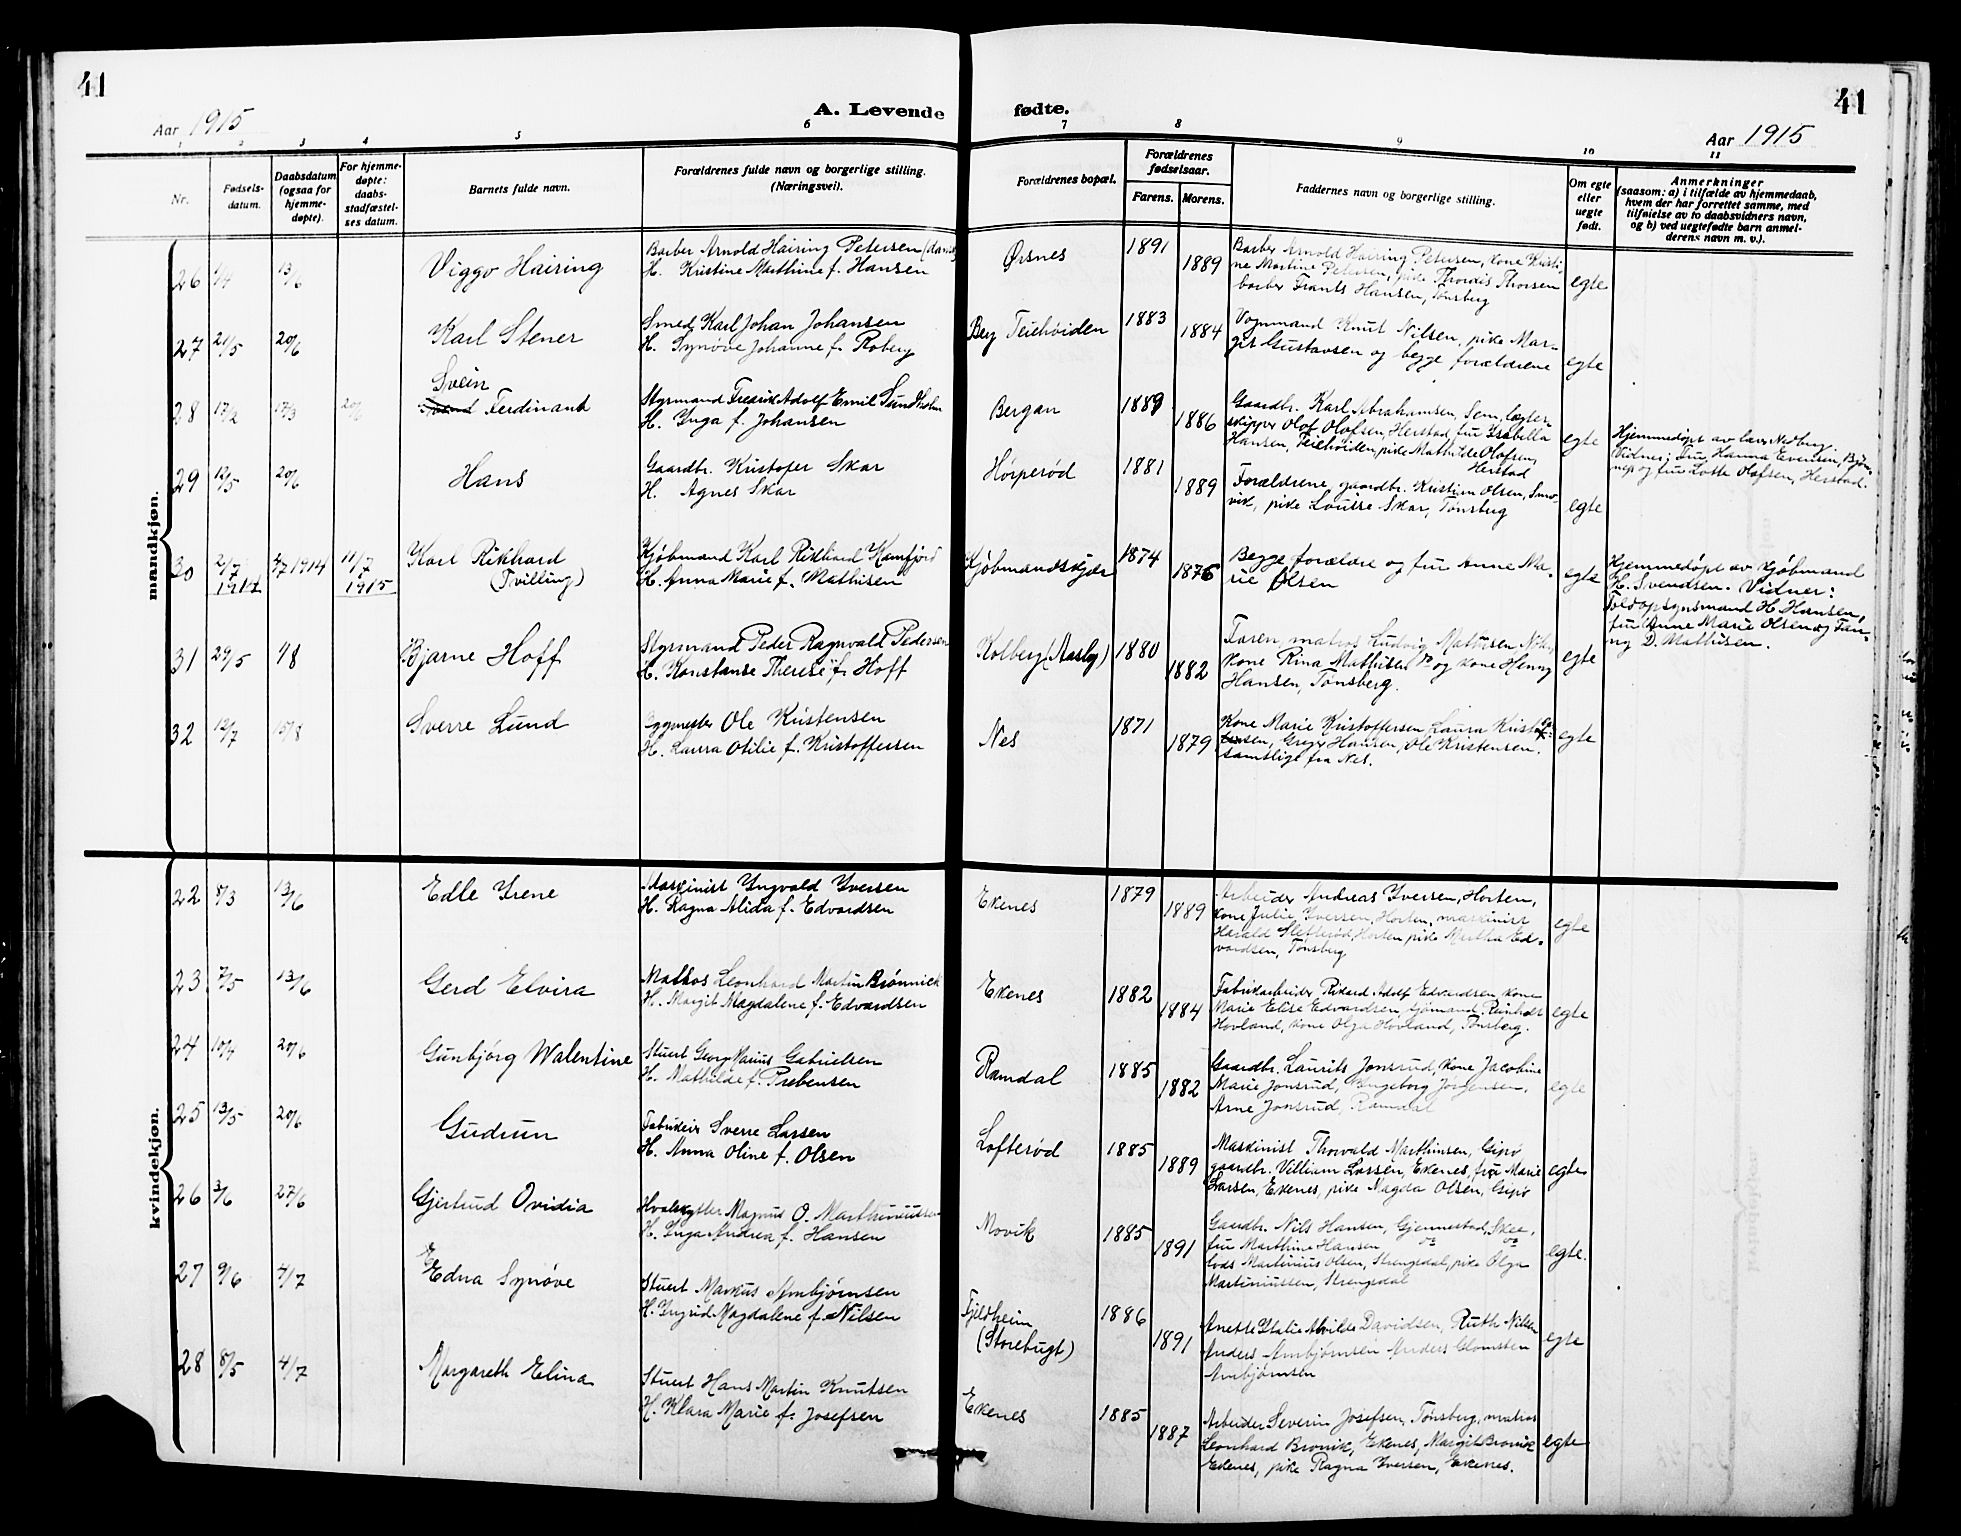 41
Aar 1915
A. Levende
1 2 3 4 5 6
Nr.
Fødsels-
datum.
Daabsdatum
(ogsaa for
hjemme-
døpte).
For hjemme-
døpte:
daabs-
stadfæstel-
ses datum.
Barnets fulde navn.
Forældrenes fulde navn og borgerlige stilling.
(Næringsvei).
mandkjøn.
26 13/6 Viggo Hairing
Barber Arnold Hairing Petersen
H. Kristine Marthine f. Hansen
27 21/5 20/6 Karl Stener
Smed Karl Johan Johansen
H. Synøve Johanne f. Roberg
28 17/2 17/3 20/6 Svein
Svend Ferdinand
Styrmand Fredrik Adolf Emil Sundholm
H. Ynga f. Johansen
29 12/5 20/6 Hans
Gaardbr. Kristofer Skar
H. Agnes Skar
30 2/7 1914 5/7 1914 11/7 1915 Karl Rikhard
(Tvilling)
Kjøbmand Karl Rikhard Kamfjord
H. Anna Marie f. Mathisen
31 29/5 1/8 Bjarne Hoff
Styrmand Peder Ragnvald Pedersen
H. Konstanse Therese f. Hoff
32 12/7 15/8 Sverre Lund
Bygmester Ole Kristensen
H. Laura Otilie f. Kristoffersen
kvindekjøn.
22 8/3 13/6 Edle Yrene
Maskinist Yngvald Yversen
H. Ragna Alida f. Edvardsen
23 7/5 13/6 Gerd Elvira
Matros Leonhard Martin Brønnick
H. Margit Magdalene f. Edvardsen
24 10/4 20/6 Gunbjørg Walentine
Stuert Georg Marius Gabrielsen
H. Mathilde f. Prebensen
25 13/5 20/6 Gudrun
Fabrikeier Sverre Larsen
H. Anna Oline f. Olsen
26 3/6 27/6 Gjertrud Ovidia
Hvalskytter Magnus O. Marthiniussen
H. Ynga Andrea f. Hansen
27 9/6 4/7 Edna Synøve
Stuert Markus Arnbjørnsen
H. Yngrid Magdalene f. Nilsen
28 8/5 4/7 Margareth Elina
Stuert Hans Martin Knutsen
H. Klara Marie f. Josefsen
41
fødte.
Aar 1915
7 8 9 10 11
Forældrenes bopæl.
Forældrenes
fødselsaar.
Farens. Morens.
Faddernes navn og borgerlige stilling.
Om egte
eller
uegte
født.
Anmerkninger
(saasom: a) i tilfælde av hjemmedaab,
hvem der har forrettet samme, med
tilføielse av to daabsvidners navn,
og b) ved uegtefødte barn anmel-
derens navn m. v.).
Ørsnes 1891 1889
Barber Arnold Hairing Petersen, kone Kristi-
ne Martine Petersen, pike Thordis Thorsen
barber Frants Hansen, Tønsberg
egte
Berg Teiehøiden 1883 1884
Vognmand Knut Nilsen, pike Mar-
git Gustavsen og begge forældrene
egte
Bergan 1889 1886
Gaardbr. Karl Abrahamsen, Sem, lægter-
skipper Olof Olofsen, Herstad, fru Ysabella
Hansen, Teiehøiden, pike Mathilde Olofsen,
Herstad
egte
Hjemmedøpt av læge Nedberg
Vidner: Fru Hanna Evensen,
og fru Lotte Olofsen, Herstad.
Hørperød 1881 1889
Forældrene, gaardbr. Kristian Olsen, Smør-
vik, pike Louise Skar, Tønsberg
egte
Kjøbmandskjær 1874 1876
Begge forældre og fru Anne Ma-
rie Olsen
egte
Hjemmedøpt av kjøbmand
H. Svendsen. Vidner:
Toldopsynsmand H. Hansen,
fru Anne Marie Olsen og Fan-
ny D. Mathisen.
Kolberg (Aasly) 1880 1882
Faren, matros Ludvig Mathisen
kone Rina Mathisen og kone Henny
Hansen, Tønsberg.
egte
Nes 1871 1879
Kone Marie Kristoffersen, Laura Kristof-
fersen, Greger Hansen, Ole Kristensen.
samtlige fra Nes.
egte
Ekenes 1879 1889
Arbeider Andreas Yversen, Horten,
kone Julie Yversen, Horten, maskinist
Harald Sletterød, Horten, pike Martha Ed-
vardsen, Tønsberg
egte
Ekenes 1882 1884
Fabrikarbeider Rikard Adolf Edvardsen, kone
Marie Elise Edvardsen, sjømand Reinholt
Hovland, kone Olga Hovland, Tønsberg.
egte
Ramdal 1885 1882
Gaardbr. Laurits Jonsrud, kone Jacobine
Marie Jonsrud, Yngeborg Jørgensen,
Arne Jonsrud, Ramdal
egte
Lofterød 1885 1889
Maskinist Thorvald Marthinsen, Gipø
gaardbr. Villiam Larsen, Ekenes, fru Marie
Larsen, Ekenes, pike Magda Olsen, Gipø
egte
Movik 1885 1891
Gaardbr. Nils Hansen, Gjennestad, Skee,
fru Marthine Hansen do do
lods Martinius Olsen, Strengsdal, pike Olga
Martiniussen, Strengsdal
egte.
Fjeldheim
(Storebugt) 1886 1891
Anette Ytalie Alvilde Davidsen, Ruth Nilsen
Anders Arnbjørnsen Anders Glomsten
Arnbjørnsen
egte
Ekenes 1885 1887
Arbeider Severin Josefsen, Tønsberg, matros
Leonhard Bronik, Ekenes, Margit Bronik
Ekenes, pike Ragna Yversen, Ekenes.
egte